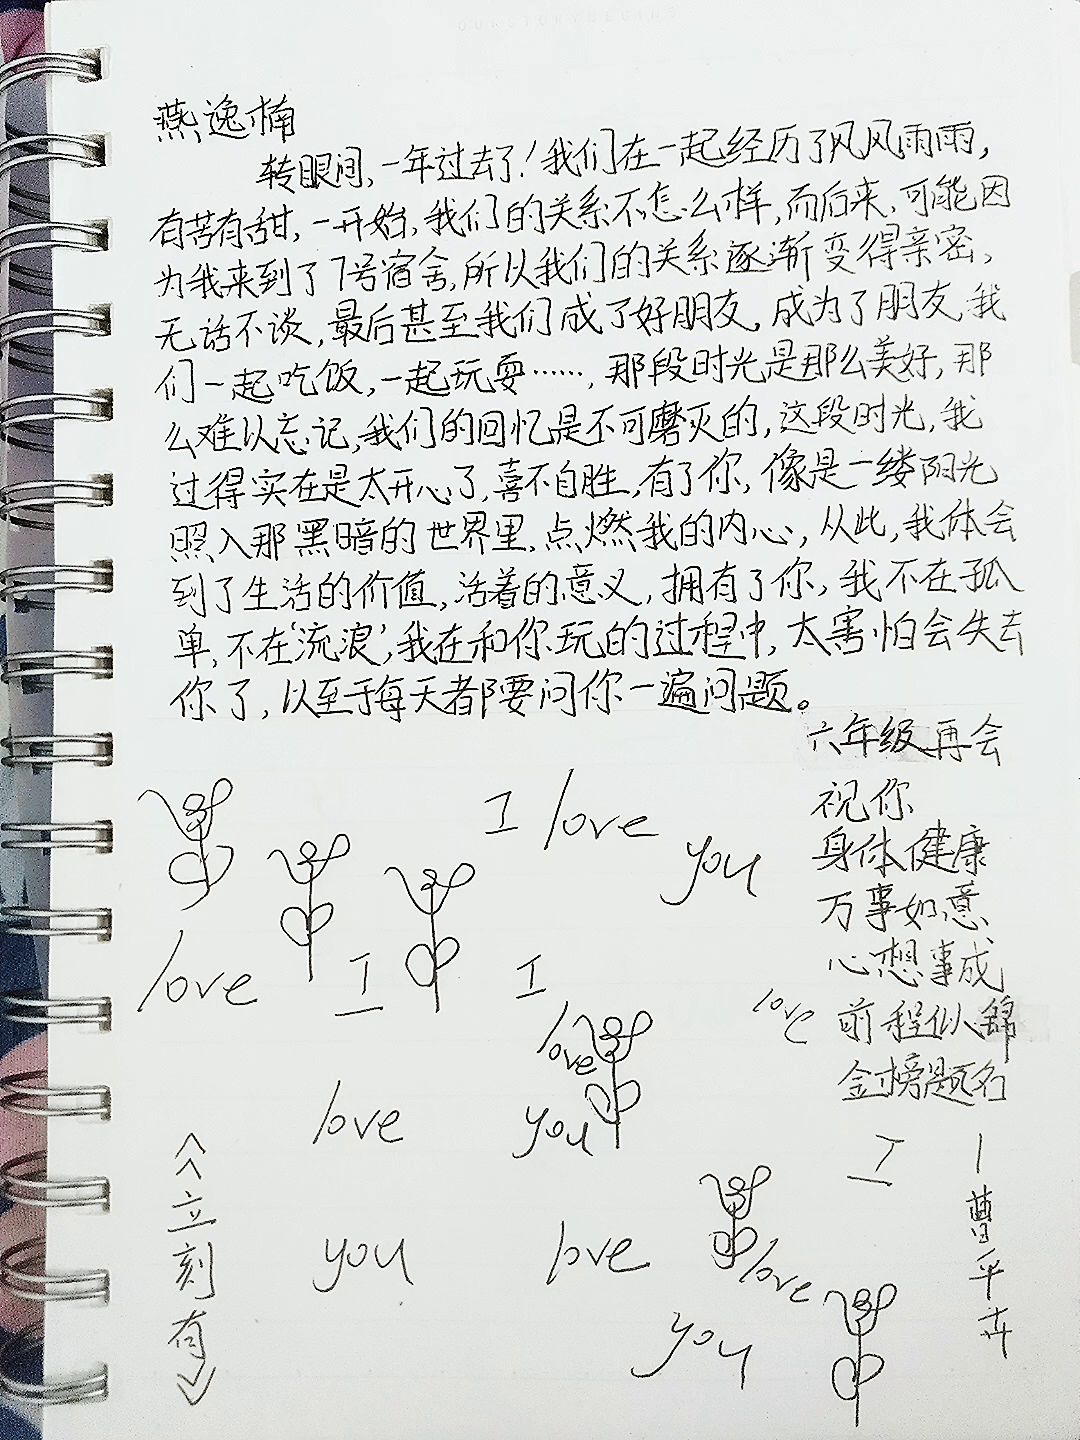 燕逸楠
转眼间,一年过去了!我们在一起经历了风风雨雨,
有苦有甜,一开始,我们的关系不怎么样,而后来,可能因
为我来到了7号宿舍,所以我们的关系逐渐变得亲密,
无话不谈,最后甚至我们成了好朋友,成为了朋友,我
们一起吃饭,一起玩耍……,那段时光是那么美好,那
么难以忘记,我们的回忆是不可磨灭的,这段时光,我
过得实在是太开心了,喜不自胜,有了你,像是一缕阳光
照入那黑暗的世界里,点燃我的内心,从此,我体会
到了生活的价值,活着的意义,拥有了你,我不在孤
单,不在'流浪',我在和你玩的过程中,太害怕会失去
你了,以至于每天都要问你一遍问题。
六年级再会
祝你
身体健康
万事如意
心想事成
前程似锦
金榜题名
I love
you
love
I
I
love
love
love
you
I
you
love
love
you
《立刻有》
一曹平卉